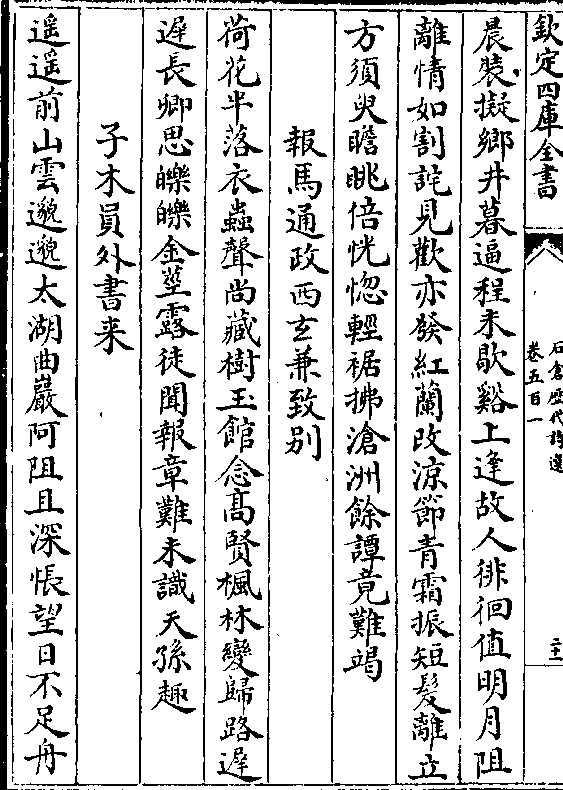 欽定四庫全書
石倉歷代詩選
卷五百一
二十一
晨裝擬鄉井暮逼程未歇谿上逢故人徘徊值明月阻
離情如割詫見歡亦發紅蘭改涼節青霜振短髮離立
方須臾瞻眺倍恍惚輕裾拂滄洲餘譚竟難竭
報馬通政西玄兼致别
荷花半落衣蟲聲尚藏樹玉館念髙賢楓林變歸路遲
遲長卿思皪皪金莖露徒聞報章難未識天孫趣
子木員外書来
遥遥前山雲邈邈太湖曲巖阿阻且深悵望日不足舟